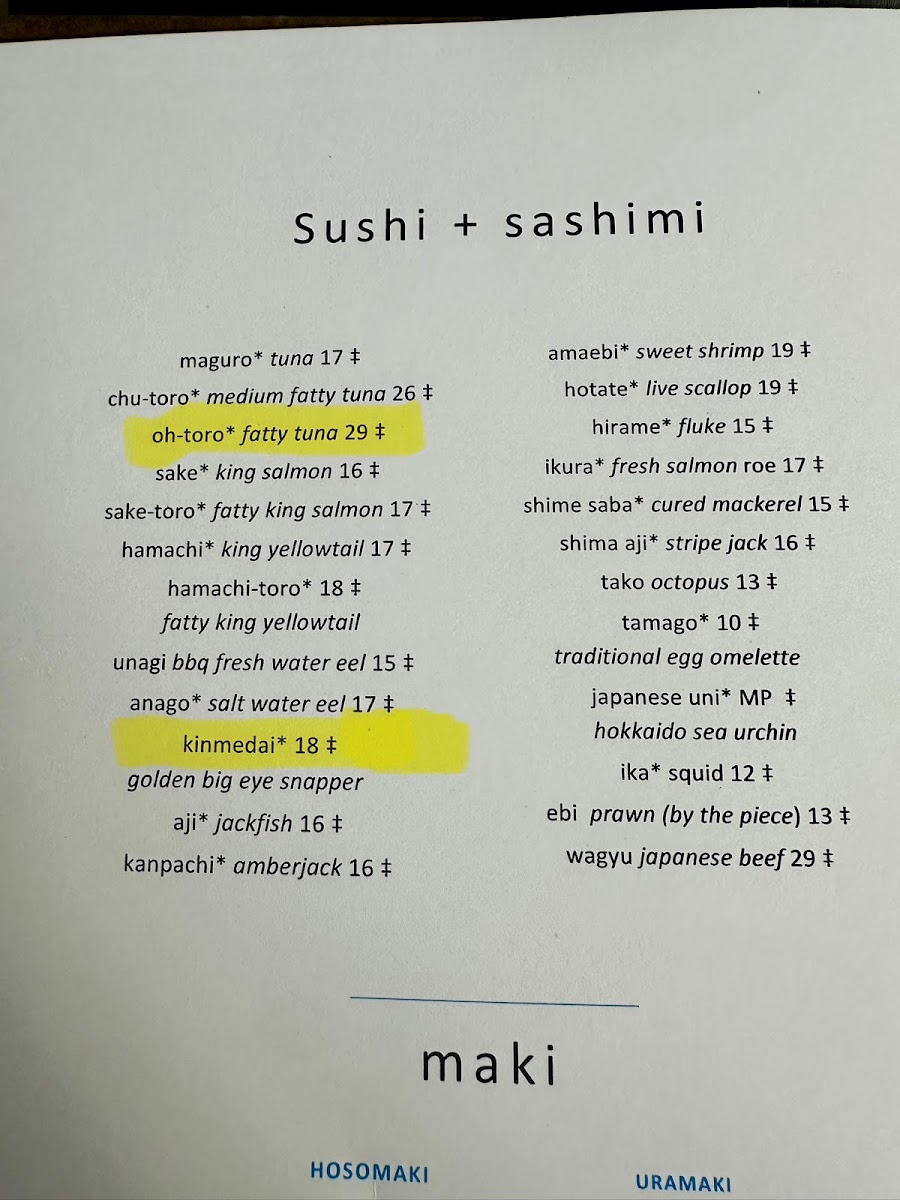 Sushi + sashimi
maguro* tuna 17 ‡
chu-toro* medium fatty tuna 26 ‡
oh-toro* fatty tuna 29 ‡
sake* king salmon 16 ‡
sake-toro* fatty king salmon 17 ‡
hamachi* king yellowtail 17 ‡
hamachi-toro* 18 ‡
fatty king yellowtail
unagi bbq fresh water eel 15 ‡
anago* salt water eel 17 ‡
kinmedai* 18 ‡
golden big eye snapper
aji* jackfish 16 ‡
kanpachi* amberjack 16 ‡
amaebi* sweet shrimp 19 ‡
hotate* live scallop 19 ‡
hirame* fluke 15 ‡
ikura* fresh salmon roe 17 ‡
shime saba* cured mackerel 15 ‡
shima aji* stripe jack 16 ‡
tako octopus 13 ‡
tamago* 10 ‡
traditional egg omelette
japanese uni* MP ‡
hokkaido sea urchin
ika* squid 12 ‡
ebi prawn (by the piece) 13 ‡
wagyu japanese beef 29 ‡
maki
HOSOMAKI
URAMAKI